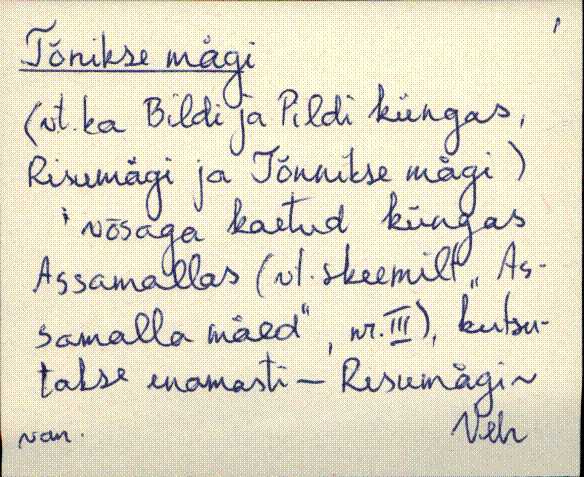 Tõnikse mägi
(vt. ka Bildi ja Pildi küngas,
Risumägi ja Tõnnikse mägi)
võsaga kaetud küngas
Assamallas (vt. skeemilt „As-
samalla mäed“, nr. III), kutsu-
takse enamasti – Risumägi~
van. Veh